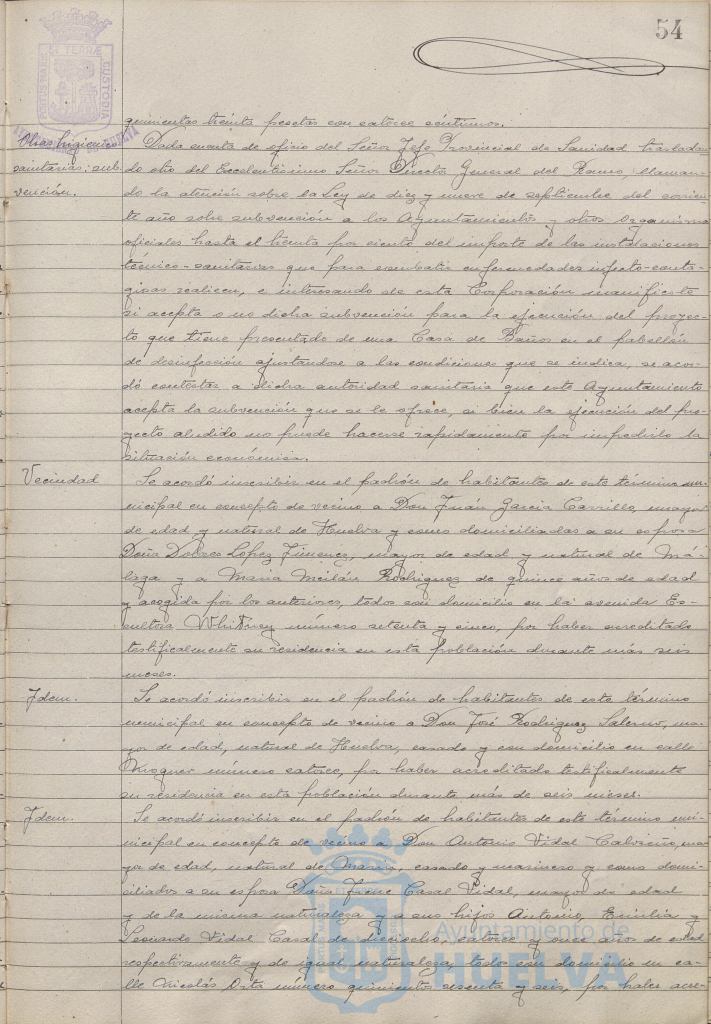 54
PORTUS MARIS ET TERRÆ CUSTODIA
quinientas treinta pesetas con catorce céntimos.
Obras higiénico
sanitarias; sub-
vención.
Dada cuenta de oficio del Señor Jefe Provincial de Sanidad trasladan-
do otro del Excelentísimo Señor Director General del Ramo, llaman-
do la atención sobre la Ley de diez y nueve de septiembre del corrien-
te año sobre subvención a los Ayuntamientos y otros organismos
oficiales hasta el treinta por ciento del importe de las instalaciones
técnico-sanitarias que para combatir enfermedades infecto-conta-
giosas realicen, e interesando de esta Corporación manifieste
si acepta o no dicha subvención para la ejecución del proyec-
to que tiene presentado de una Casa de Baños en el pabellón
de desinfección ajustándose a las condiciones que se indica, se acor-
dó contestar a dicha autoridad sanitaria que este Ayuntamiento
acepta la subvención que se le ofrece, si bien la ejecución del pro-
yecto aludido no puede hacerse rapidamente por impedirlo la
situación económica.
Vecindad
Se acordó inscribir en el padrón de habitantes de este término mu-
nicipal en concepto de vecino a Don Juán García Carrillo, mayor
de edad y natural de Huelva y como domiciliadas a su esposa
Doña Dolores López Jimenez, mayor de edad y natural de Má-
laga y a María Meilán Rodriguez de quince años de edad
y acogida por los anteriores, todos con domicilio en la avenida Es-
cultora Whitney número setenta y cinco, por haber acreditado
testificalmente su residencia en esta población durante más seis
meses.
Idem.
Se acordó inscribir en el padrón de habitantes de este término
municipal en concepto de vecino a Don José Rodriguez Salerno, ma-
yor de edad, natural de Huelva, casado y con domicilio en calle
Moguer número catorce, por haber acreditado testificalmente
su residencia en esta población durante más de seis meses.
Idem.
Se acordó inscribir en el padrón de habitantes de este término mu-
nicipal en concepto de vecino a Don Antonio Vidal Calviño, ma-
yor de edad, natural de Marín, casado y marinero y como domi-
ciliados a su esposa Doña Irene Casal Vidal, mayor de edad
y de la misma naturaleza y a sus hijos Antonio, Emilia y
Leonardo Vidal Casal de dieciocho, catorce y once años de edad
respectivamente y de igual naturaleza, todos con domicilio en ca-
lle Nicolás Orta número quinientos sesenta y seis, por haber acre-
Ayuntamiento de
HUELVA